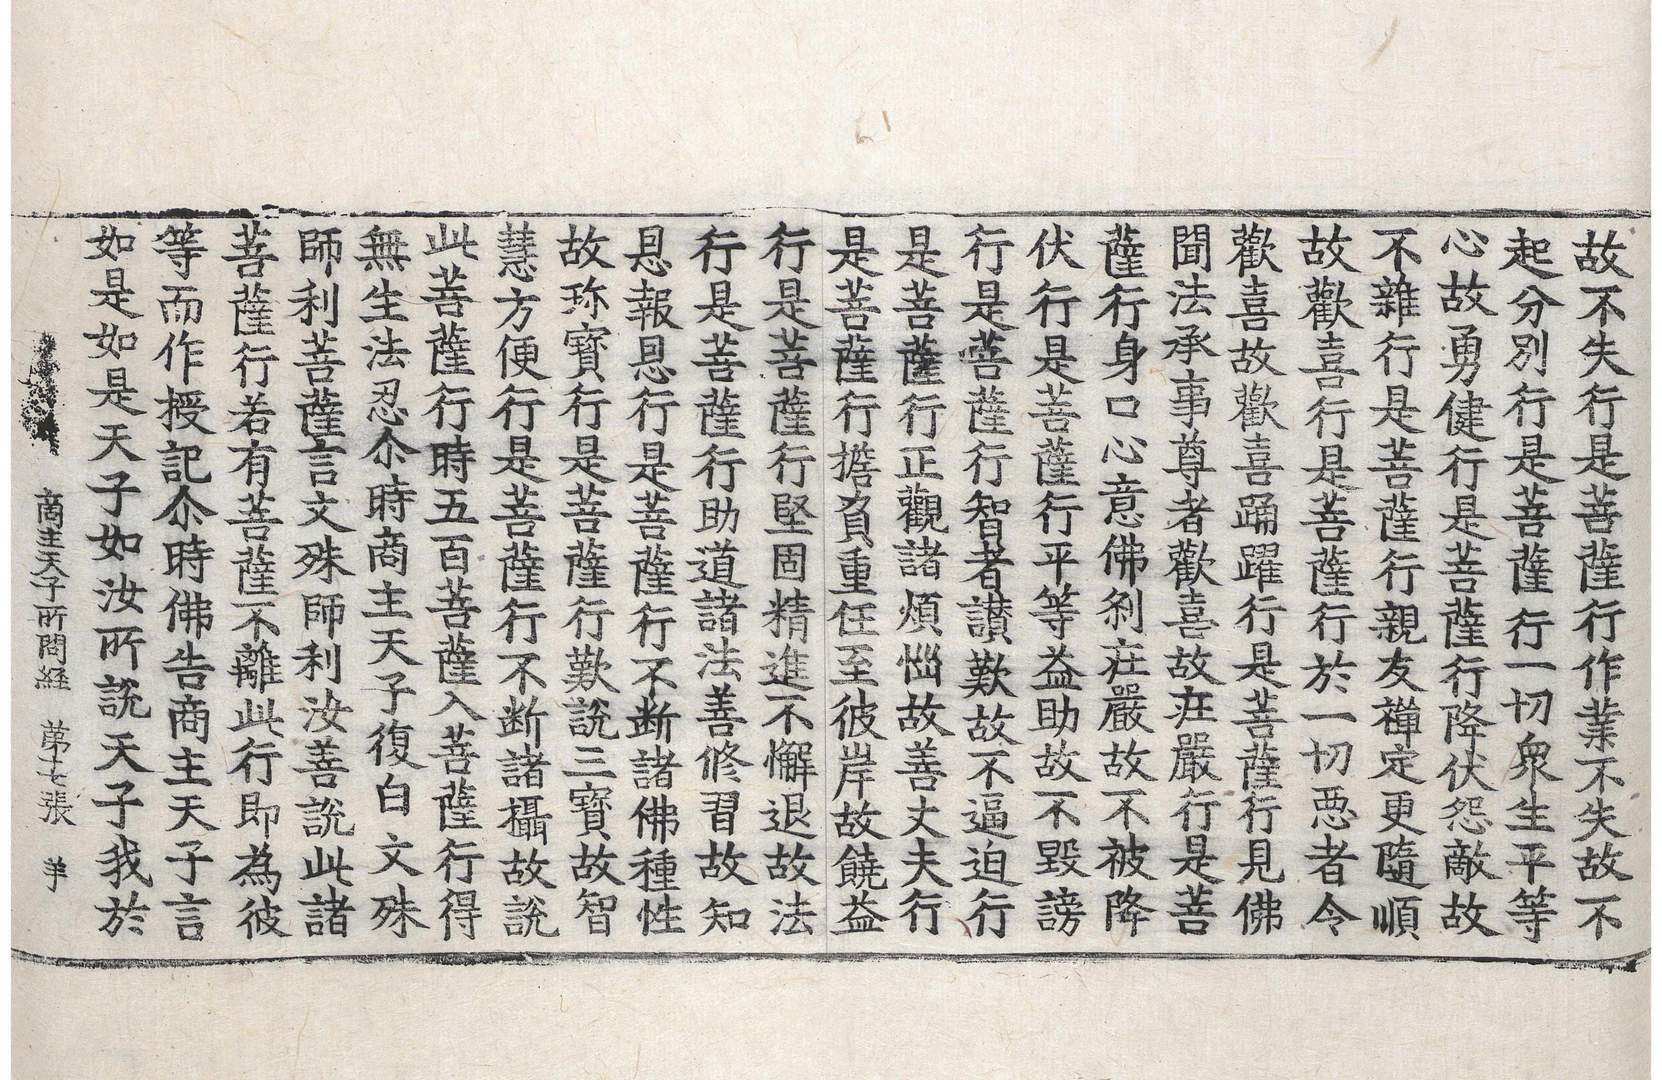 故不失行是菩薩行作業不失故不
起分別行是菩薩行一切衆生平等
心故勇健行是菩薩行降伏怨敵故
不雜行是菩薩行親友禪定更隨順
故歡喜行是菩薩行於一切惡者令
歡喜故歡喜踊躍行是菩薩行見佛
聞法承事尊者歡喜故庄嚴行是菩
薩行身口心意佛刹庄嚴故不被降
伏行是菩薩行平等益助故不毀謗
行是菩薩行智者讃歎故不逼迫行
是菩薩行正觀諸煩惱故善丈夫行
是菩薩行擔負重任至彼岸故饒益
行是菩薩行堅固精進不懈退故法
行是菩薩行助道諸法善修習故知
恩報恩行是菩薩行不断諸佛種性
故珎寶行是菩薩行歎說三寶故智
慧方便行是菩薩行不断諸攝故說
此菩薩行時五百菩薩入菩薩行得
無生法忍尒時商主天子復白文殊
師利菩薩言文殊師利汝善說此諸
菩薩行若有菩薩不離此行即為彼
等而作授記尒時佛告商主天子言
如是如是天子如汝所說天子我於
商主天子所問經 第七張 羊